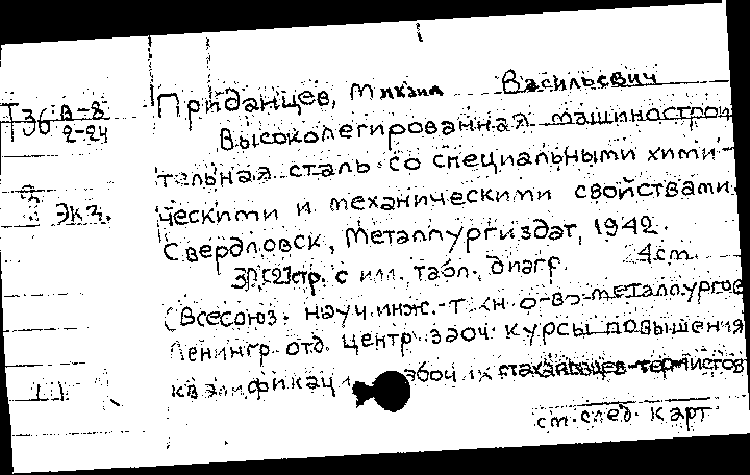 Т36 В-8
2-24
Приданцев, Михаил Васильевич
Высоколегированная машинострои-
тельная сталь со специальными хими-
ческими и механическими свойствами.
экз.
Свердловск, Металлургиздат, 1942.
стр. с илл. табл., диагр. 4см.
(Всесоюз. науч. инж.-техн. о-во металлургов
Ленингр. отд. Центр. заоч. курсы повышения
квалификации рабочих стахановцев-термистов
см. след. карт.